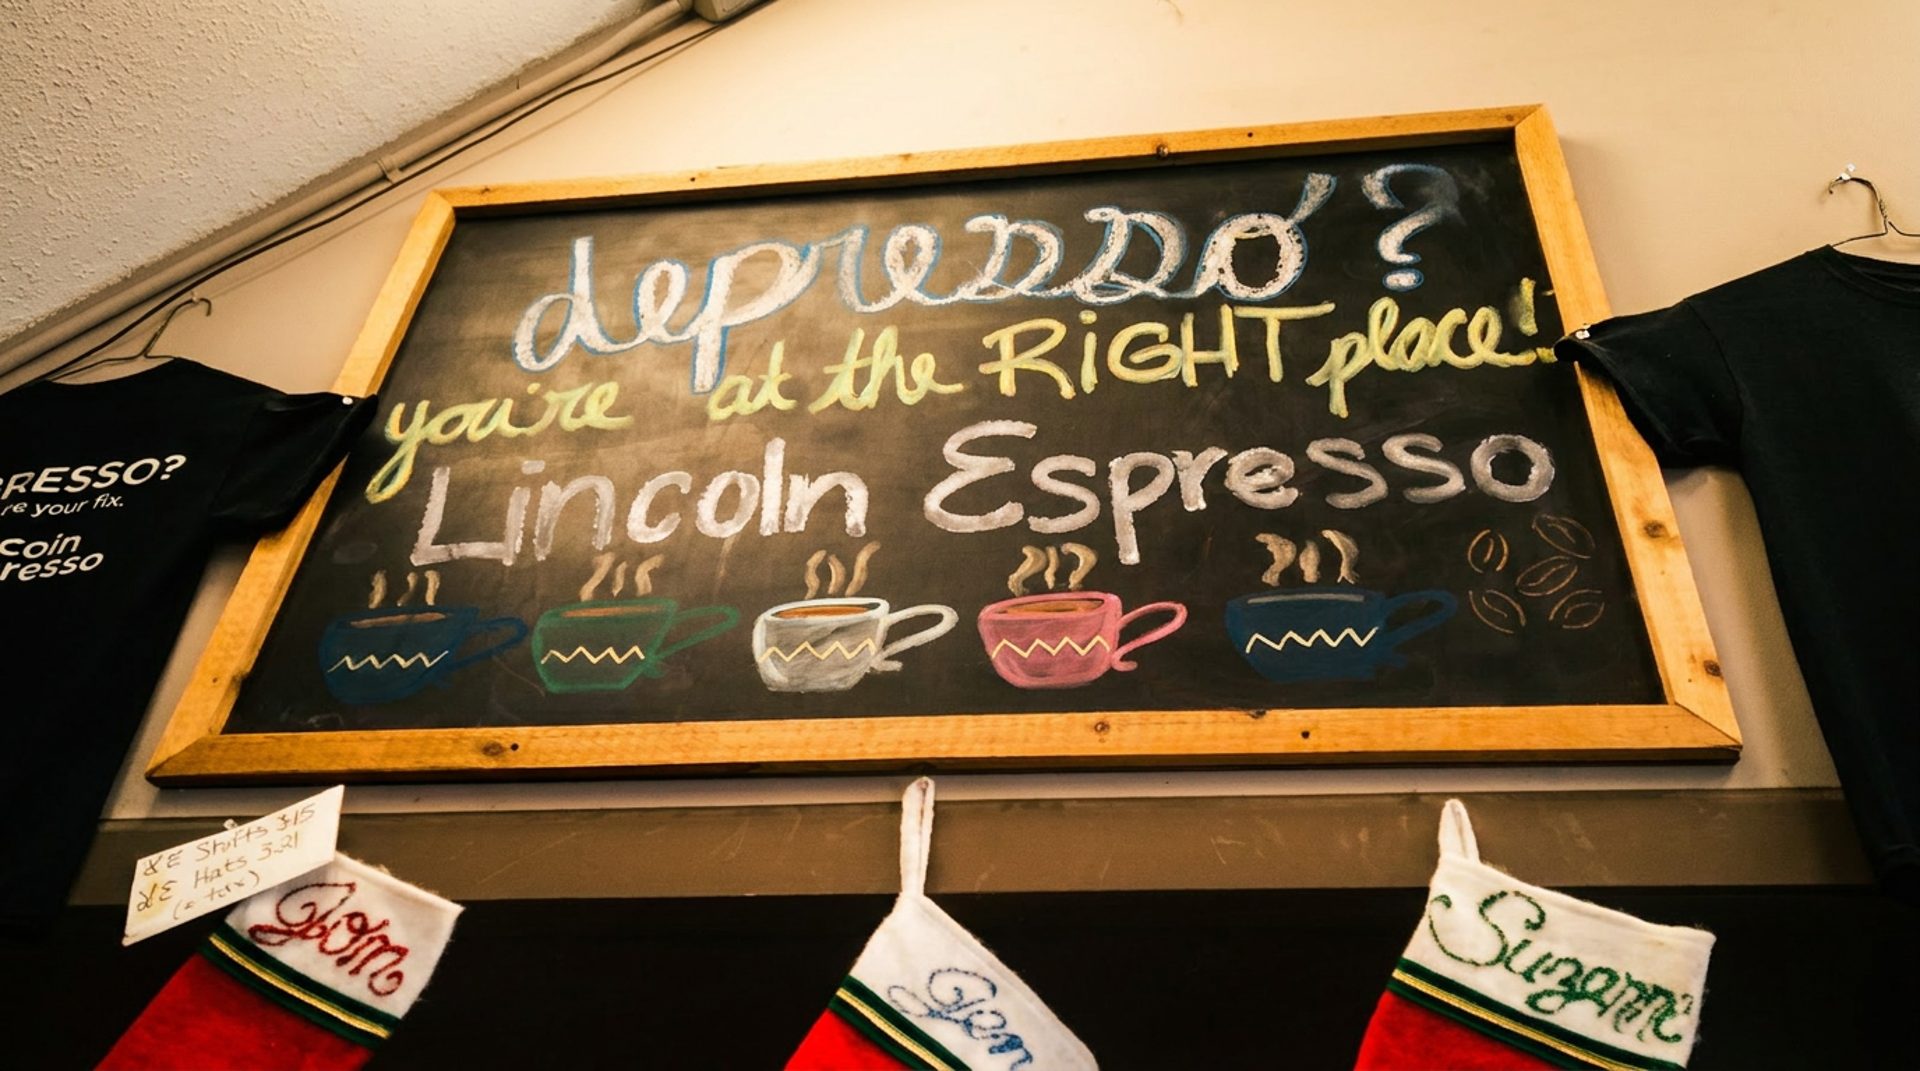 depresso'?
you're at the RiGHT place!
Lincoln Espresso
RESSO?
re your fix.
coin
resso
LE Shirts $15
LE Hats 3.21
(+ tax)
Tom
Jen
Suzanne